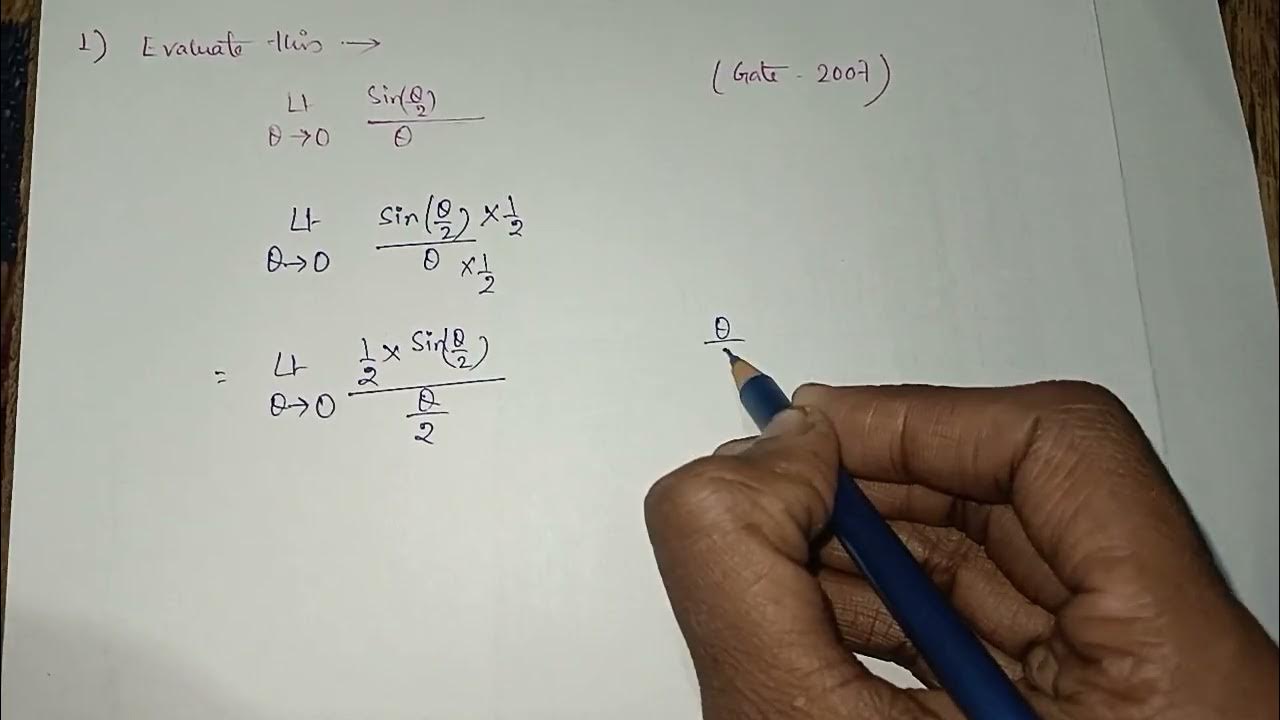 1) Evaluate this →
(Gate - 2007)
Lt sin(θ/2)
θ→0 θ
Lt sin(θ/2) × 1/2
θ→0 θ × 1/2
= Lt 1/2 × sin(θ/2)
θ→0 θ/2
θ